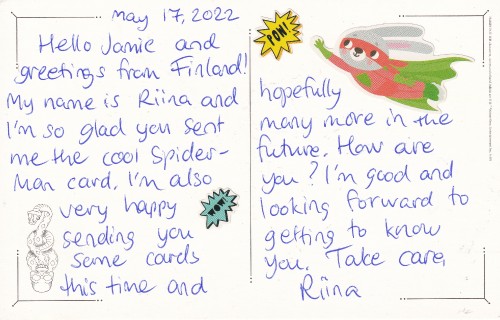 May 17, 2022
Hello Jamie and
greetings from Finland!
My name is Riina and
I'm so glad you sent
me the cool Spider-
Man card. I'm also
very happy
sending you
some cards
this time and
WOW!
POW!
hopefully
many more in the
future. How are
you? I'm good and
looking forward to
getting to know
you. Take care,
Riina